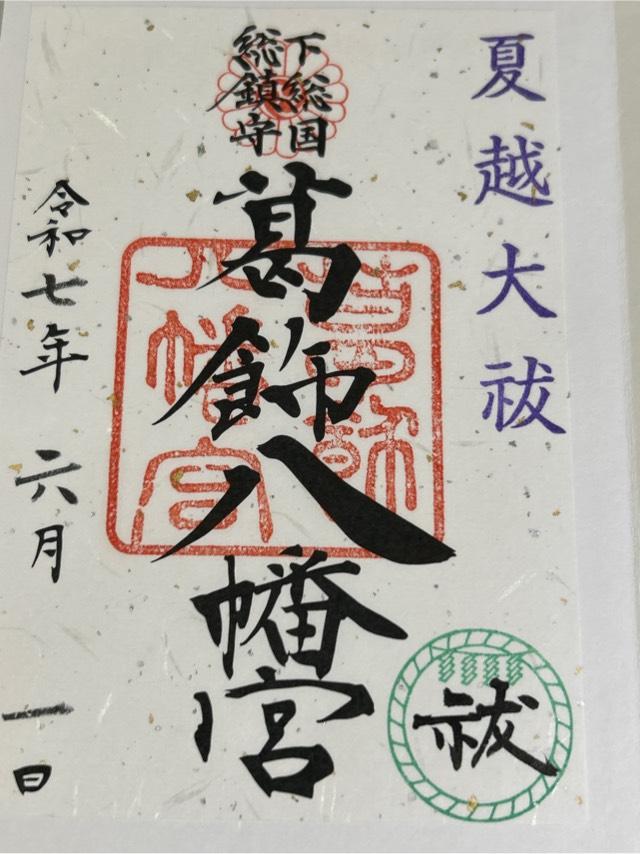 夏越大祓
下総国
総鎮守
葛飾八幡宮
葛飾
八幡宮
令和七年 六月 一日
祓